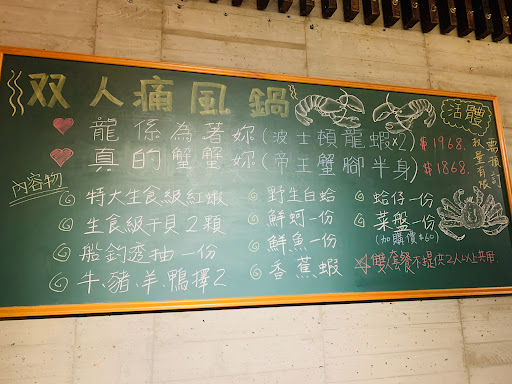 双人痛風鍋
活體
龍係為著妳(波士頓龍蝦x2) $1968.
真的蟹蟹妳(帝王蟹腳半身) $1868.
需預訂
數量有限
內容物
特大生食級紅蝦
生食級干貝2顆
船釣透抽一份
牛、豬、羊、鴨擇2
野生白蛤
鮮蚵一份
鮮魚一份
香蕉蝦
蛤仔一份
菜盤一份
(加購價$60)
雙人套餐不提供2人以上共用